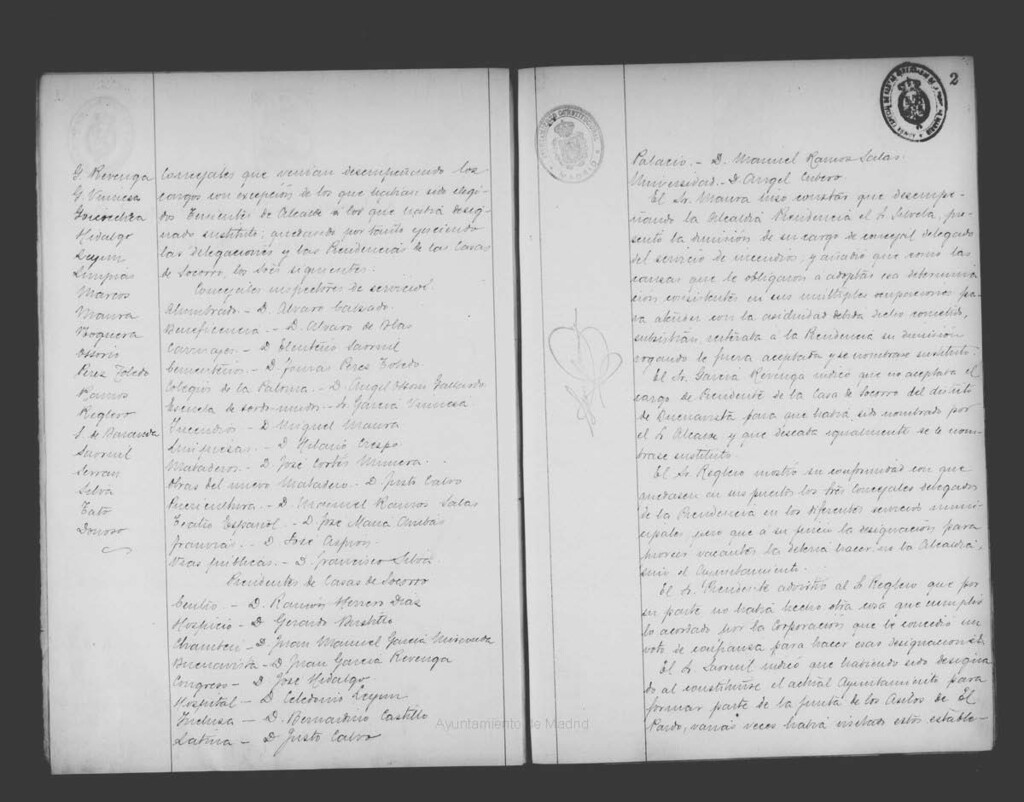 G. Revenga
G. Vinuesa
Goicoechea
Hidalgo
Leyun
Limpias
Marcos
Maura
Noguera
Ossorio
Perez Toledo
Ramos
Reglero
S. de Baranda
Saornil
Serran
Silva
Tato
Donoso
Concejales que venían desempeñando los
cargos con excepción de los que habían sido elegi-
dos Tenientes de Alcalde á los que habrá desig-
nado sustituto; quedando por tanto ejerciendo
las delegaciones y las Presidencias de las Casas
de Socorro, los Sres siguientes:
Concejales inspectores de servicios.
Alumbrado. - D. Alvaro Calzado.
Beneficencia. - D. Alvaro de Blas
Carruajes. - D. Eleuterio Saornil
Cementerios. - D. Tomás Perez Toledo.
Colegios de la Paloma. - D. Angel Ossorio Gallardo
Escuela de sordo-mudos. - Sr. Garcia Vinuesa
Incendios. - D. Miguel Maura
Limpiezas. - D. Hilario Crespo.
Mataderos. - D. José Cortés Munera.
Obras del nuevo Matadero. - D. Justo Calvo
Puericultura. - D. Manuel Ramos Salas
Teatro Español. - D. José Maria
Tranvías. - D. José
Vias públicas. - D. Francisco Silva
Presidentes de Casas de Socorro
Centro. - D. Ramón Herrero Diaz
Hospicio. - D. Gerardo Bustillo
Chamberi. - D. Juan Manuel Garcia
Buenavista - D. Juan Garcia Revenga
Congreso. - D. José Hidalgo
Hospital. - D. Celedonio Leyun
Inclusa. - D. Bernardino Castillo
Latina. - D. Justo Calvo
2
Palacio. - D. Manuel Ramos Salas.
Universidad. - D. Angel Cubero.
El Sr. Maura hizo constar que desempe-
ñando la Alcaldía Presidencia el Sr. Silvela, pre-
sentó la dimisión de su cargo de concejal delegado
del servicio de incendios, y añadió que como las
causas que le obligaron a adoptar esa determina-
cion consistentes en sus multiples ocupaciones pa-
ra atender con la asiduidad debida dicho cometido,
subsistían, reiteraba á la Presidencia su dimisión
rogando le fuera aceptada y se nombrase sustituto.
El Sr. Garcia Revenga indicó que no aceptaba el
cargo de Presidente de la Casa de Socorro del distrito
de Buenavista para que había sido nombrado por
el Sr. Alcalde y que deseaba igualmente se le nom-
brase sustituto.
El Sr. Reglero mostró su conformidad con que
quedasen en sus puestos los Sres Concejales delegados
de la Presidencia en los diferentes servicios muni-
cipales, pero que á su juicio la designación para
proveer vacantes la debería hacer, no la Alcaldía,
sino el Ayuntamiento.
El Sr. Presidente advirtió al Sr. Reglero que por
su parte no había hecho otra cosa que cumplir
lo acordado por la Corporación que le concedió un
voto de confianza para hacer esas designaciones.
El Sr. Saornil indicó que habiendo sido designa-
do al constituirse el actual Ayuntamiento para
formar parte de la Junta de los Asilos de El
Pardo, varias veces había visitado estos estable-
Ayuntamiento de Madrid